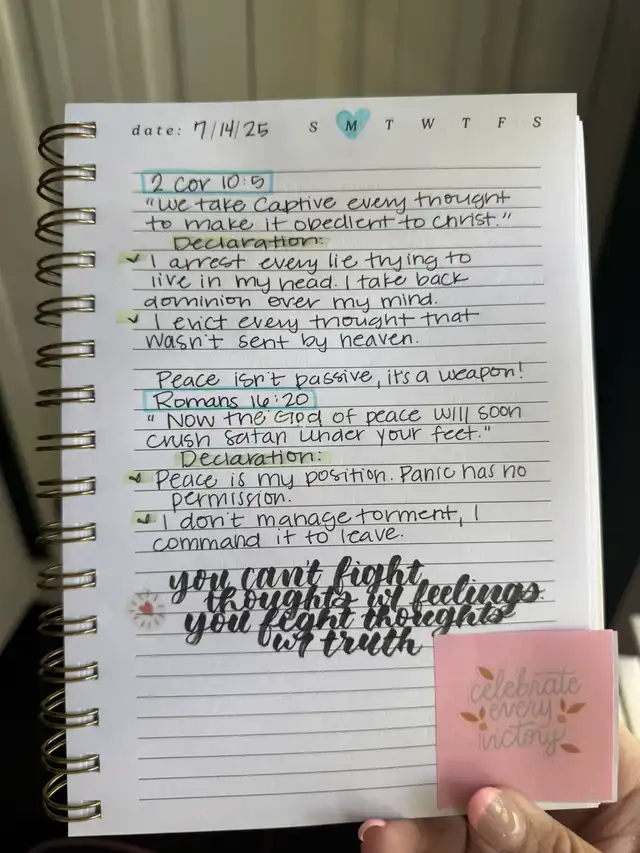 date: 7/14/25 S M T W T F S
2 cor 10:5
"We take captive every thought
to make it obedient to Christ."
Declaration:
I arrest every lie trying to
live in my head. I take back
dominion over my mind.
I evict every thought that
wasn't sent by heaven.
Peace isn't passive, it's a weapon!
Romans 16:20
"Now the God of peace will soon
crush satan under your feet."
Declaration:
Peace is my position. Panic has no
permission.
I don't manage torment, I
command it to leave.
you can't fight
thoughts w/ feelings
you fight thoughts
w/ truth
celebrate
every
victory